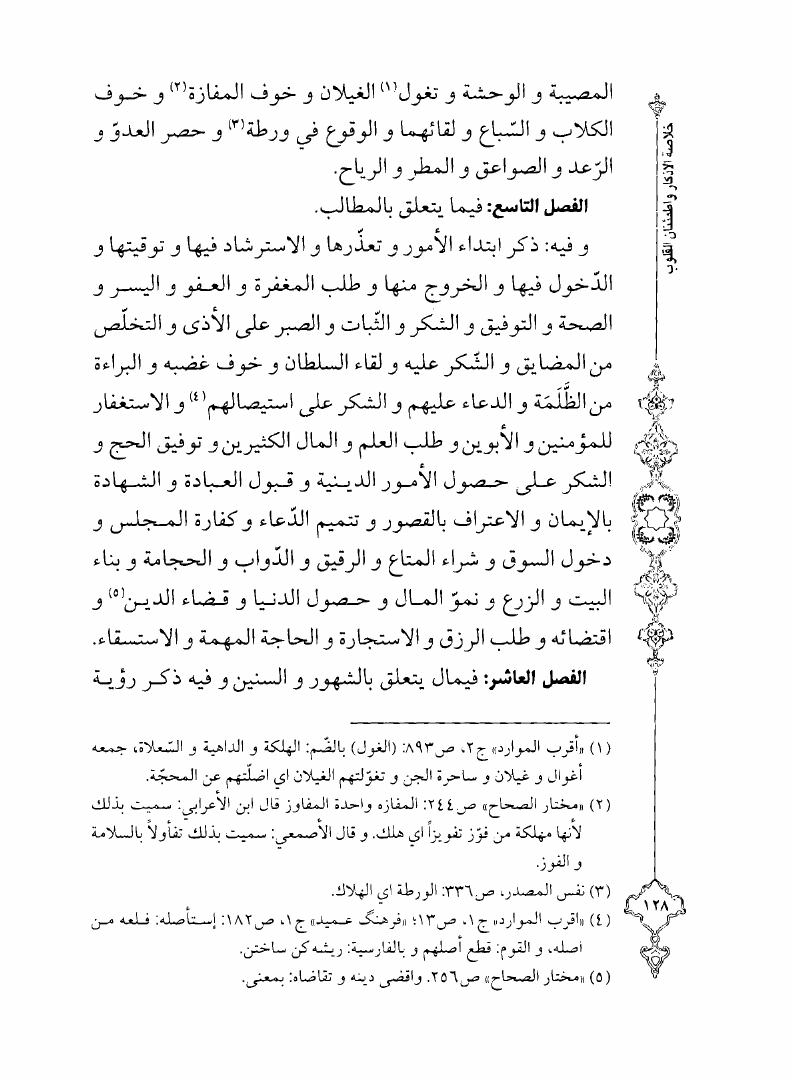 خلاصة الأذكار واطمئنان القلوب
المصيبة و الوحشة و تغول(١) الغيلان و خوف المفازة(٢) و خـوف
الكلاب و السّباع و لقائهما و الوقوع في ورطة(٣) و حصر العدوّ و
الرّعد و الصواعق و المطر و الرياح.
الفصل التاسع: فيما يتعلق بالمطالب.
و فيه: ذكر ابتداء الأمور و تعذّرها و الاسترشاد فيها و توقيتها و
الدّخول فيها و الخروج منها و طلب المغفرة و العـفو و اليسـر و
الصحة و التوفيق و الشكر و الثّبات و الصبر على الأذى و التخلّص
من المضايق و الشّكر عليه و لقاء السلطان و خوف غضبه و البراءة
من الظَّلَمَة و الدعاء عليهم و الشكر على استيصالهم(٤) و الاستغفار
للمؤمنين و الأبوين و طلب العلم و المال الكثيرين و توفيق الحج و
الشكر عـلى حـصول الأمـور الديـنية و قـبول العـبادة و الشـهادة
بالإيمان و الاعتراف بالقصور و تتميم الدّعاء و كفارة المـجلس و
دخول السوق و شراء المتاع و الرقيق و الدّواب و الحجامة و بناء
البيت و الزرع و نموّ المـال و حـصول الدنـيا و قـضاء الديـن(٥) و
اقتضائه و طلب الرزق و الاستجارة و الحاجة المهمة و الاستسقاء.
الفصل العاشر: فيمال يتعلق بالشهور و السنين و فيه ذكـر رؤيـة
(١) «أقرب الموارد» ج٢، ص٨٩٣: (الغول) بالضّم: الهلكة و الداهية و السّعلاة، جمعه
أغوال و غيلان و ساحرة الجن و تغوّلتهم الغيلان اي اضلّتهم عن المحجّة.
(٢) «مختار الصحاح» ص٢٤٤: المفازه واحدة المفاوز قال ابن الأعرابي: سميت بذلك
لأنها مهلكة من فوّز تفويزاً اي هلك. و قال الأصمعي: سميت بذلك تفأولاً بالسلامة
و الفوز.
(٣) نفس المصدر، ص٣٣٦: الورطة اي الهلاك.
(٤) «اقرب الموارد» ج١، ص١٣؛ «فرهنگ عـميد» ج١، ص١٨٢: إسـتأصله: قـلعه مـن
اصله، و القوم: قطع أصلهم و بالفارسية: ريشه كن ساختن.
(٥) «مختار الصحاح» ص٢٥٦. واقضى دينه و تقاضاه: بمعنى.
١٢٨